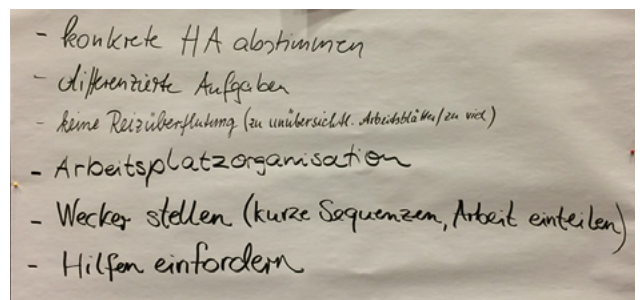 - konkrete HA abstimmen
- differenzierte Aufgaben
- keine Reizüberflutung (zu unübersichtl. Arbeitsblätter/zu viel)
- Arbeitsplatzorganisation
- Wecker stellen (kurze Sequenzen, Arbeit einteilen)
- Hilfen einfordern